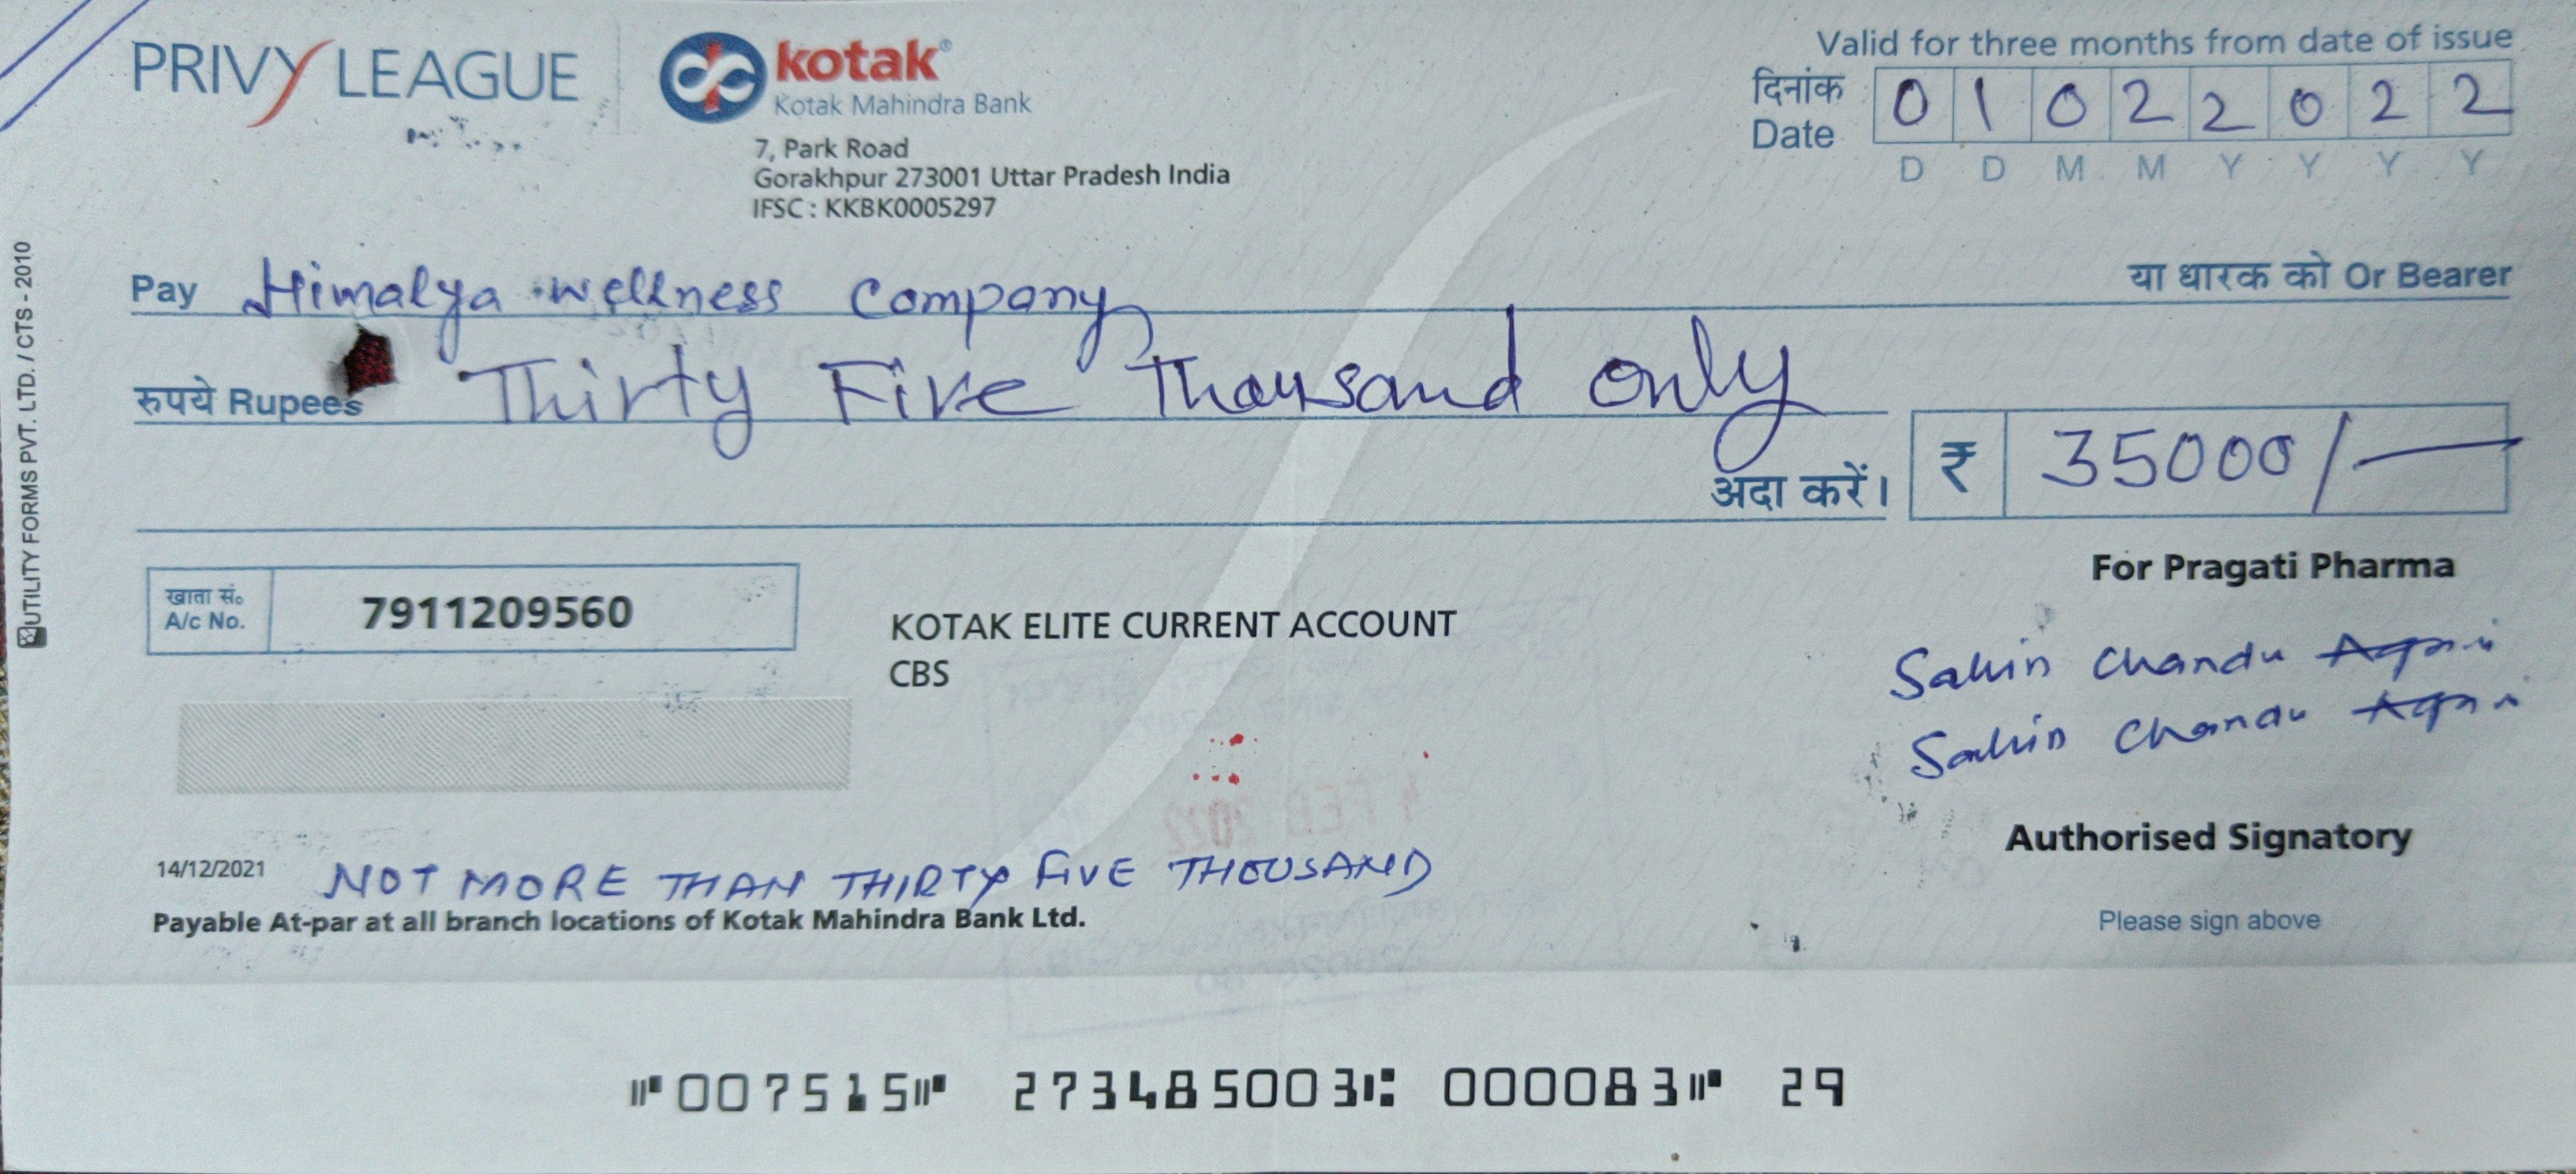 PRIVY LEAGUE
kotak®
Kotak Mahindra Bank
7, Park Road
Gorakhpur 273001 Uttar Pradesh India
IFSC : KKBK0005297
Valid for three months from date of issue
दिनांक
Date
0 1 0 2 2 0 2 2
D D M M Y Y Y Y
Pay Himalya wellness company या धारक को Or Bearer
रुपये Rupees Thirty Five Thousand only
अदा करें। ₹ 35000/-
खाता सं॰
A/c No. 7911209560
KOTAK ELITE CURRENT ACCOUNT
CBS
For Pragati Pharma
Chandu
Chandu
Authorised Signatory
Please sign above
- 4 FEB 2022
14/12/2021 NOT MORE THAN THIRTY FIVE THOUSAND
Payable At-par at all branch locations of Kotak Mahindra Bank Ltd.
UTILITY FORMS PVT. LTD. / CTS - 2010
⑈007515⑈ 273485003⑆ 000083⑈ 29